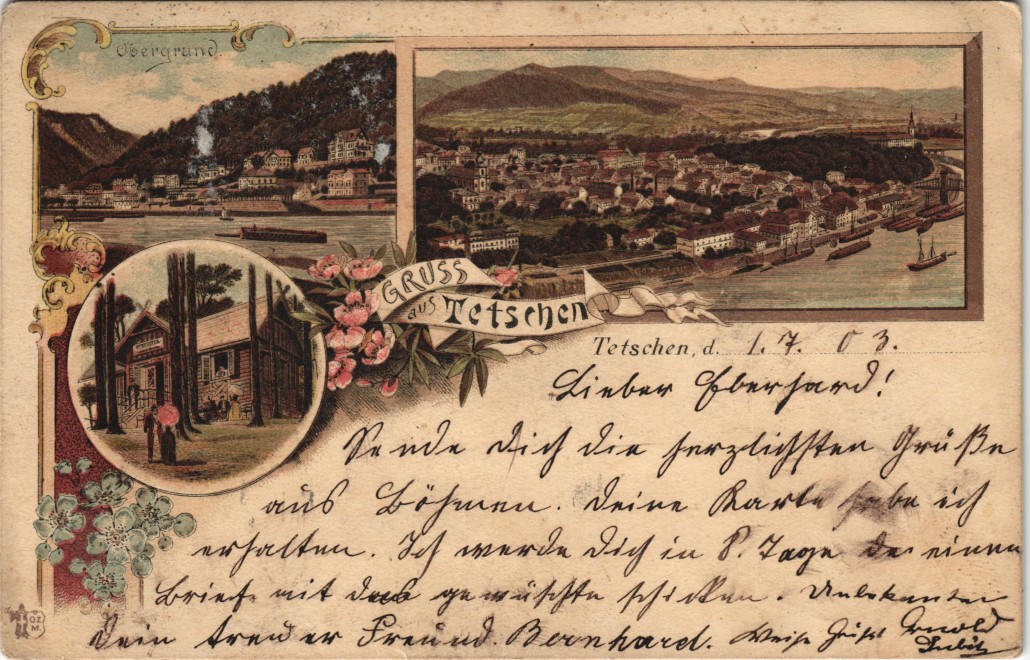 Obergrund.
GRUSS
aus Tetschen
Tetschen, d. 1. 7. 03.
Lieber Eberhard!
Sende Dich die herzlichsten Grüße
aus Böhmen. Deine Karte habe ich
erhalten. Ich werde Dich in 8. Tage einen
Brief mit gewüschte schicken. Unbekannter
Dein treuer Freund Bernhard. Weise Arnold
OZ
M.